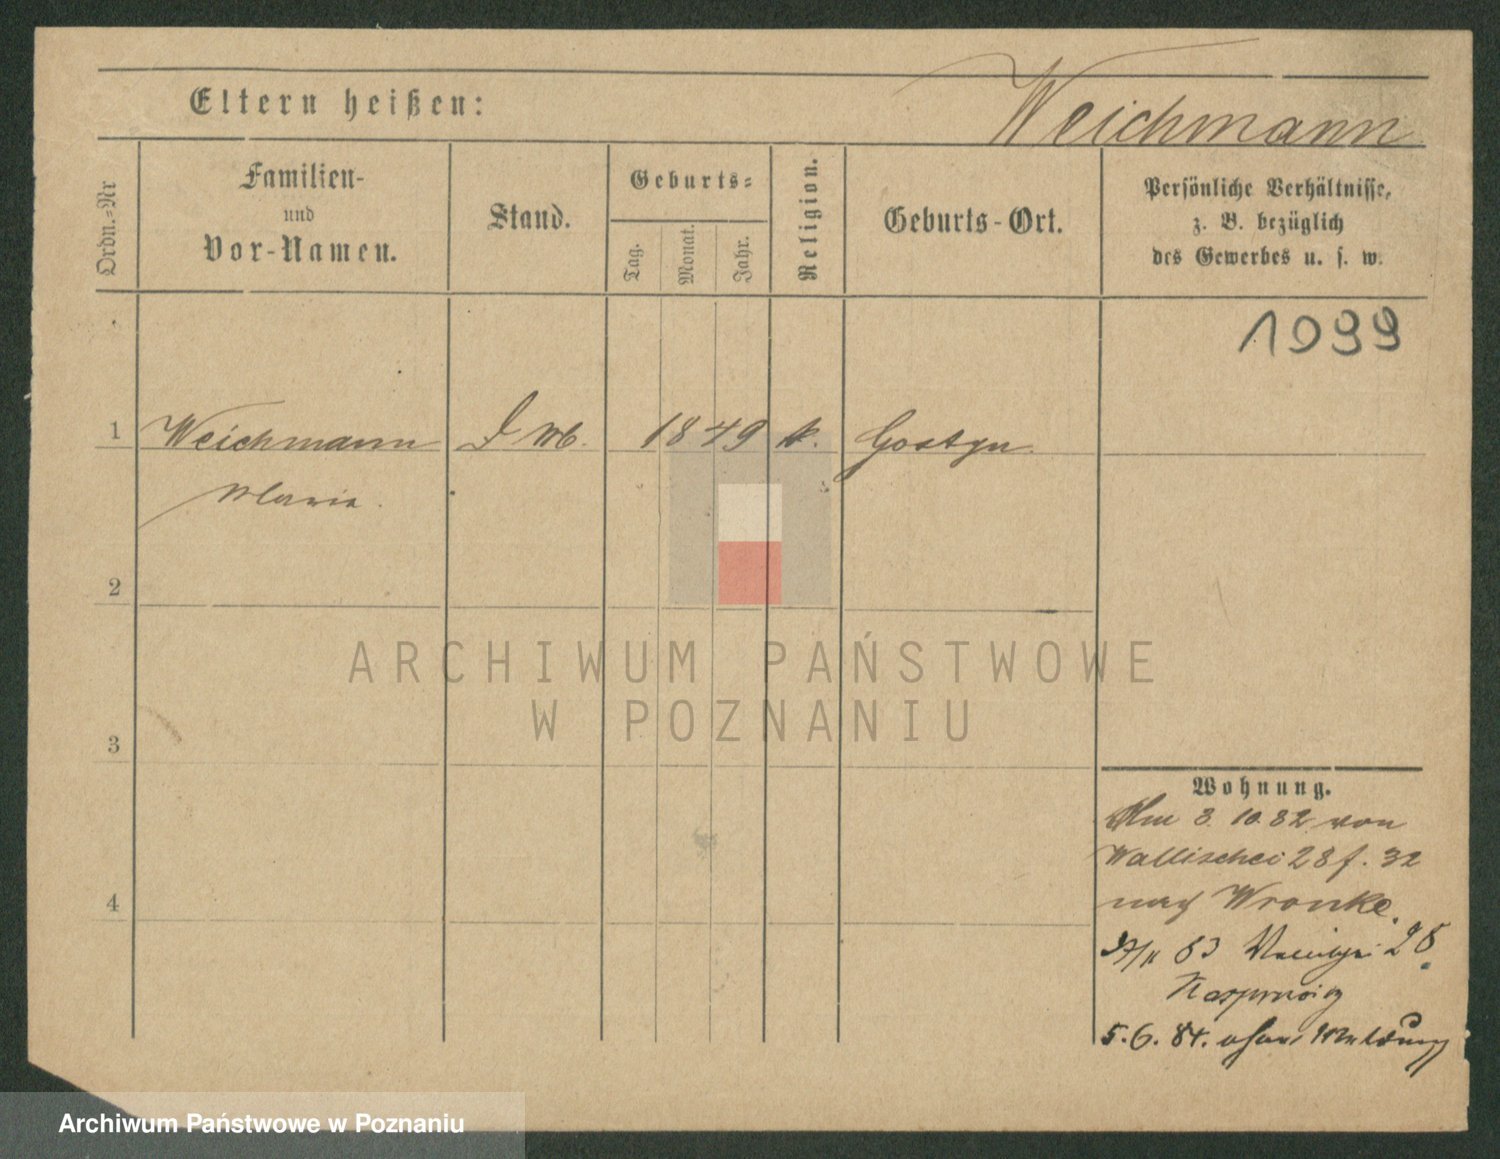 Eltern heißen:
Weichmann
Ordn.-Nr
Familien-
und
Vor-Namen.
Stand.
Geburts-
Tag.
Monat.
Jahr.
Religion.
Geburts-Ort.
Persönliche Verhältnisse,
z. B. bezüglich
des Gewerbes u. s. w.
1099
1 Weichmann 1849 k. Gostyn
Maria.
2
3
4
Wohnung.
Am 3. 10. 82 von
Wallischei 28 f. 32
nach Wronke.
83 28
5. 6. 84. ohne Meldung
ARCHIWUM PAŃSTWOWE
W POZNANIU
Archiwum Państwowe w Poznaniu